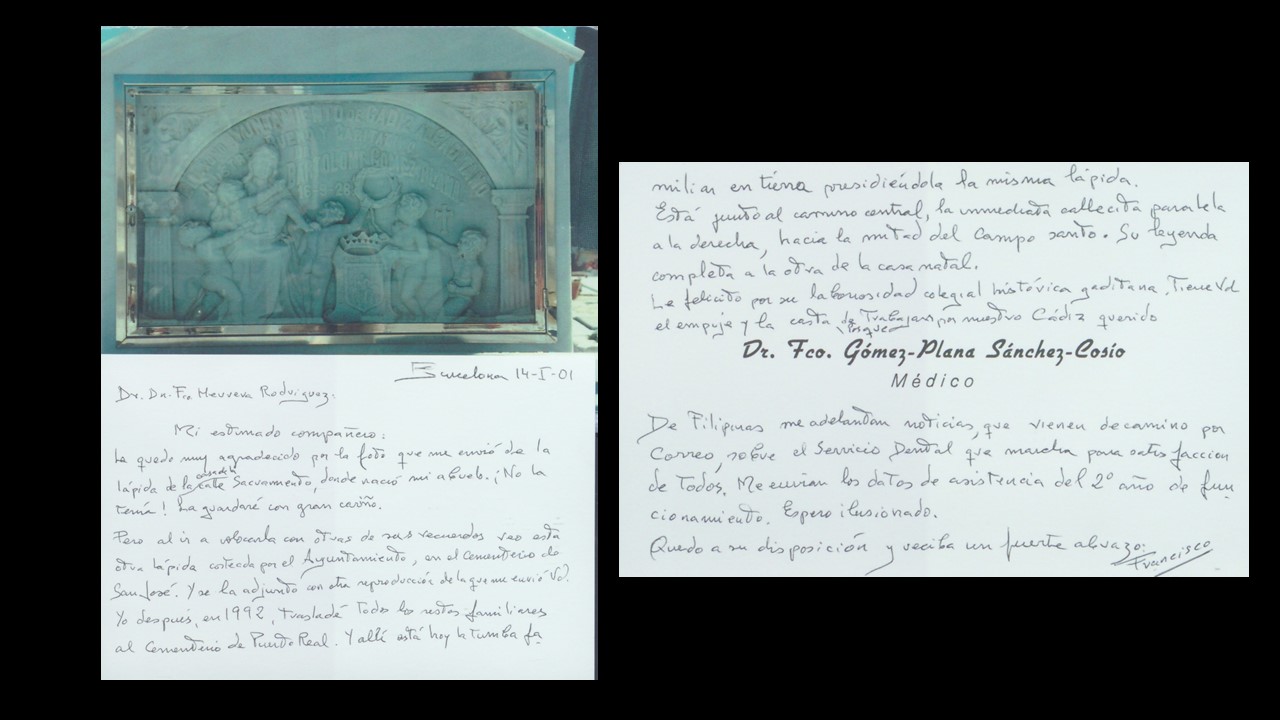 Barcelona 14-I-01
Dr. Dn. Fco Herrera Rodriguez.
Mi estimado compañero:
Le quedo muy agradecido por la foto que me envió de la
lápida de la calle Sacramento, donde nació mi abuelo. ¡No la
tenía! La guardaré con gran cariño.
Pero al ir a colocarla con otras de sus recuerdos veo esta
otra lápida costeada por el Ayuntamiento, en el Cementerio de
San José. Y se la adjunto con otra reproducción de la que me envió Vd.
Yo después, en 1992, trasladé todos los restos familiares
al Cementerio de Puerto Real. Y allí está hoy la tumba fa
miliar en tierra presidiéndola la misma lápida.
Está junto al camino central, la inmediata callecita paralela
a la derecha, hacia la mitad del Campo santo. Su leyenda
completa a la otra de la casa natal.
Le felicito por su laboriosidad colegial histórica gaditana. Tiene Vd
el empuje y la casta de Vasques Trabajar por nuestro Cádiz querido
Dr. Fco. Gómez-Plana Sánchez-Cosío
Médico
De Filipinas me adelantan noticias, que vienen de camino por
Correo, sobre el Servicio Dental que marcha para satisfaccion
de Todos. Me envian los datos de asistencia del 2º año de fun
cionamiento. Espero ilusionado.
Quedo a su disposición y reciba un fuerte abrazo:
Francisco